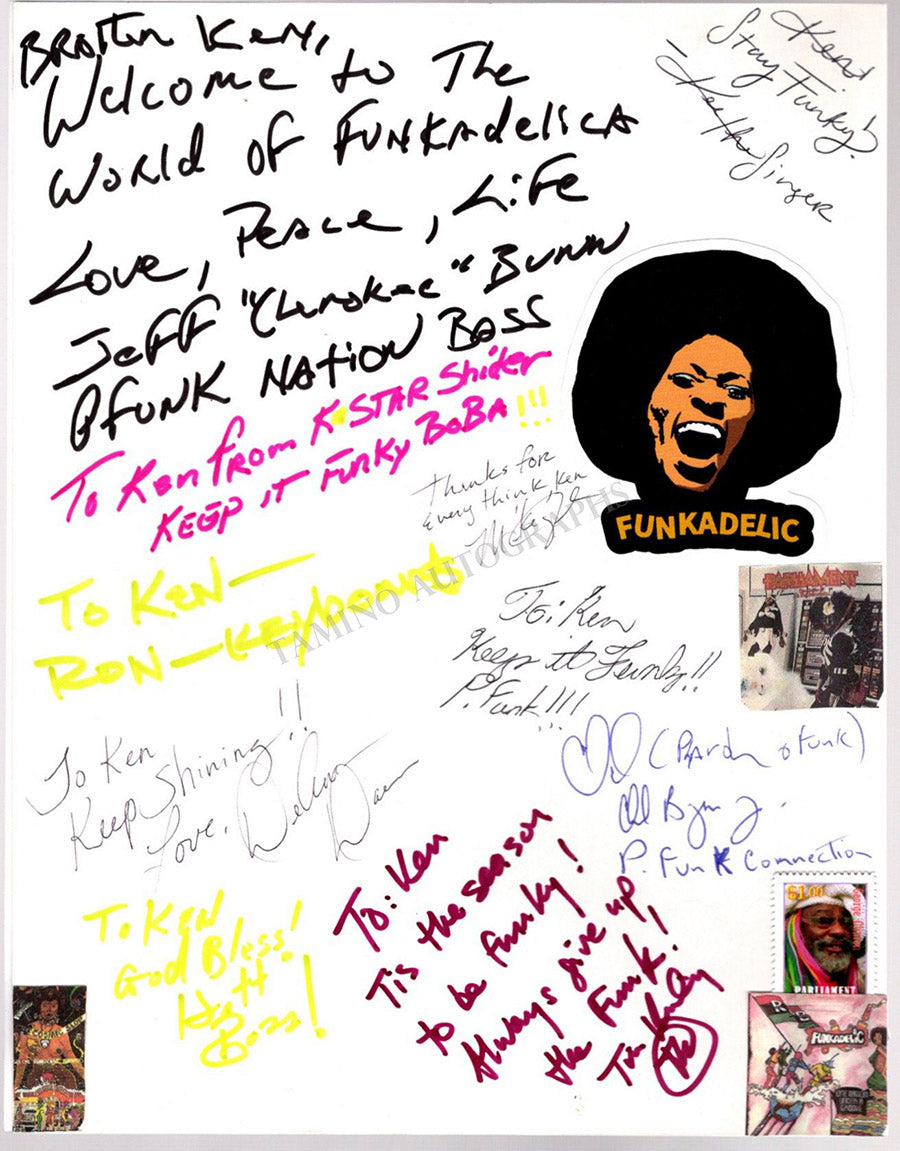 Brother Ken,
Welcome to The
World of Funkadelica
Love, Peace, Life
Jeff "Cherokee" Bunn
Pfunk Nation Bass
Ken!
Stay Funky!
- Kee the Singer
To Ken from K-STAR Shider
KEEP iT Funky BoBA!!!
Thanks for
Every think Ken
FUNKADELIC
To Ken—
Ron—Keyboards
TAMINO AUTOGRAPHS
To: Ken
Keep it Funky!!
P. Funk!!!
PARLIAMENT
To Ken
Keep Shining!!
Love,
P. Funk Connection
To: Ken
Tis the season
to be funky!
Always give up
the Funk!
To Ken
God Bless!
$1.00
George
PARLIAMENT
FUNKADELIC